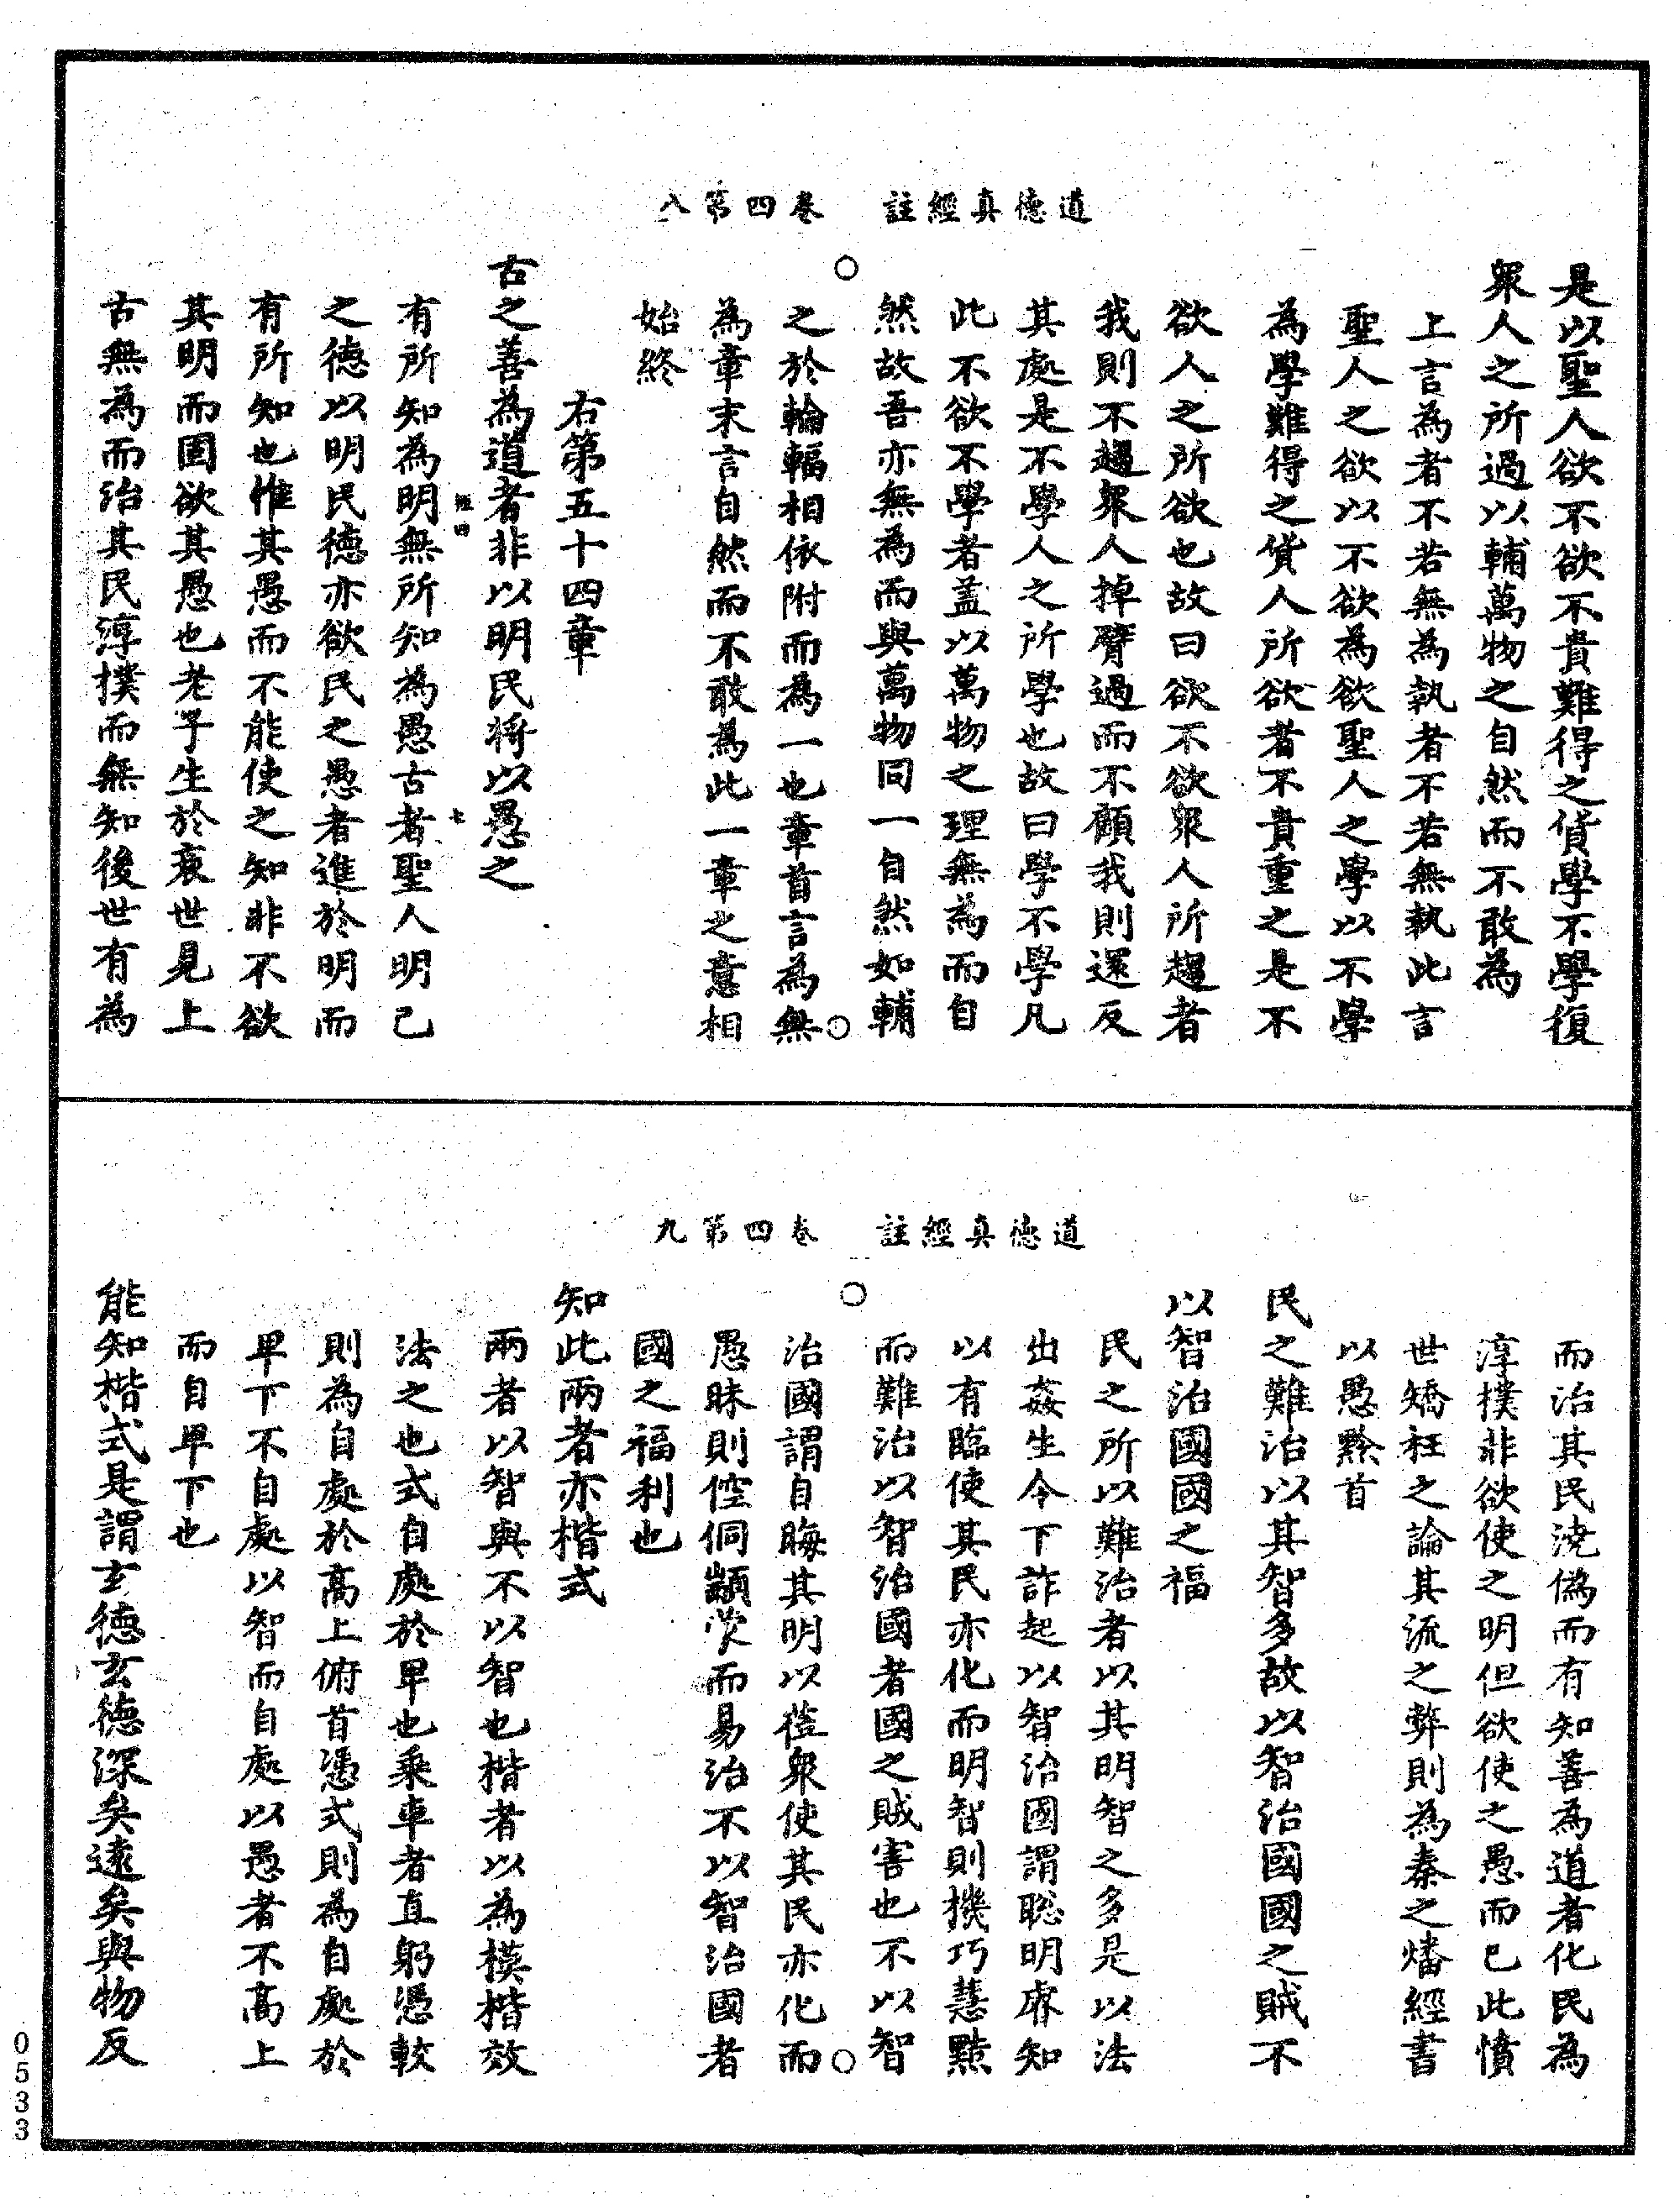 道德真經註　卷四第八
是以聖人欲不欲不貴難得之貨學不學復
眾人之所過以輔萬物之自然而不敢為
上言為者不若無為執者不若無執此言
聖人之欲以不欲為欲聖人之學以不學
為學難得之貨人所欲者不貴重之是不
欲人之所欲也故曰欲不欲眾人所趨者
我則不趨眾人掉臂過而不顧我則還反
其處是不學人之所學也故曰學不學凡
此不欲不學者蓋以萬物之理無為而自
然故吾亦無為而與萬物同一自然如輔
之於輪輻相依附而為一也章首言為無
為章末言自然而不敢為此一章之意相
始終
右第五十四章
古之善為道者非以明民將以愚之
有所知為明無所知為愚古者聖人明己
之德以明民德亦欲民之愚者進於明而
有所知也惟其愚而不能使之知非不欲
其明而固欲其愚也老子生於衰世見上
古無為而治其民淳樸而無知後世有為
道德真經註　卷四第九
而治其民澆偽而有知善為道者化民為
淳樸非欲使之明但欲使之愚而已此憤
世矯枉之論其流之弊則為秦之燔經書
以愚黔首
民之難治以其智多故以智治國國之賊不
以智治國國之福
民之所以難治者以其明智之多是以法
出姦生令下詐起以智治國謂聡明睿知
以有臨使其民亦化而明智則機巧慧黠
而難治以智治國者國之賊害也不以智
治國謂自晦其明以莅眾使其民亦化而
愚昧則倥侗顓蒙而易治不以智治國者
國之福利也
知此兩者亦楷式
兩者以智與不以智也楷者以為模楷效
法之也式自處於卑也乘車者直躬憑較
則為自處於高上俯首憑式則為自處於
卑下不自處以智而自處以愚者不高上
而自卑下也
能知楷式是謂玄德玄德深矣遠矣與物反
0533